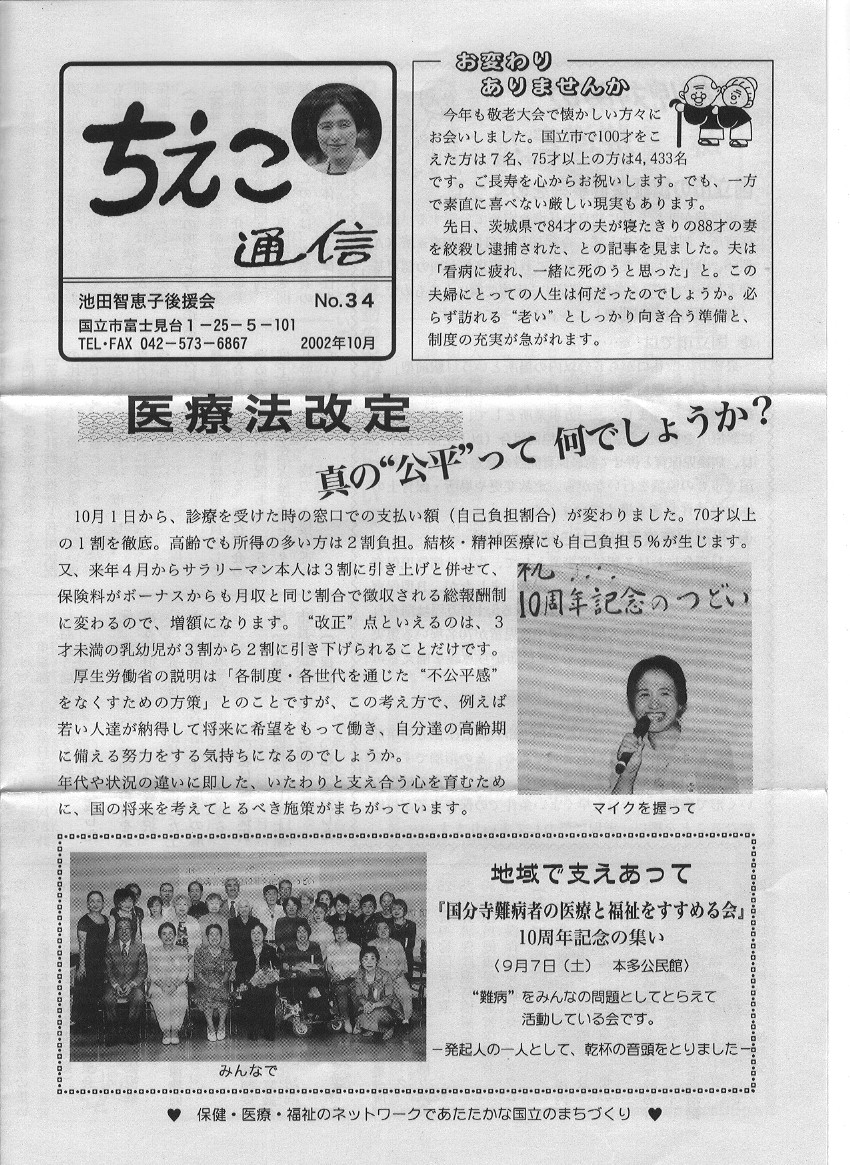 ちえこ
通信
池田智恵子後援会 No.34
国立市富士見台1-25-5-101
TEL・FAX 042-573-6867 2002年10月
お変わり
ありませんか
今年も敬老大会で懐かしい方々に
お会いしました。国立市で100才をこ
えた方は7名、75才以上の方は4,433名
です。ご長寿を心からお祝いします。でも、一方
で素直に喜べない厳しい現実もあります。
先日、茨城県で84才の夫が寝たきりの88才の妻
を絞殺し逮捕された、との記事を見ました。夫は
「看病に疲れ、一緒に死のうと思った」と。この
夫婦にとっての人生は何だったのでしょうか。必
らず訪れる“老い”としっかり向き合う準備と、
制度の充実が急がれます。
医療法改定
真の“公平”って 何でしょうか?
10月1日から、診療を受けた時の窓口での支払い額（自己負担割合）が変わりました。70才以上
の1割を徹底。高齢でも所得の多い方は2割負担。結核・精神医療にも自己負担5%が生じます。
又、来年4月からサラリーマン本人は3割に引き上げと併せて、
保険料がボーナスからも月収と同じ割合で徴収される総報酬制
に変わるので、増額になります。“改正”点といえるのは、3
才未満の乳幼児が3割から2割に引き下げられることだけです。
厚生労働省の説明は「各制度・各世代を通じた“不公平感”
をなくすための方策」とのことですが、この考え方で、例えば
若い人達が納得して将来に希望をもって働き、自分達の高齢期
に備える努力をする気持ちになるのでしょうか。
年代や状況の違いに即した、いたわりと支え合う心を育むため
に、国の将来を考えてとるべき施策がまちがっています。
祝....
10周年記念のつどい
マイクを握って
地域で支えあって
『国分寺難病者の医療と福祉をすすめる会』
10周年記念の集い
〈9月7日（土） 本多公民館〉
“難病”をみんなの問題としてとらえて
活動している会です。
―発起人の一人として、乾杯の音頭をとりました―
みんなで
♥ 保健・医療・福祉のネットワークであたたかな国立のまちづくり ♥